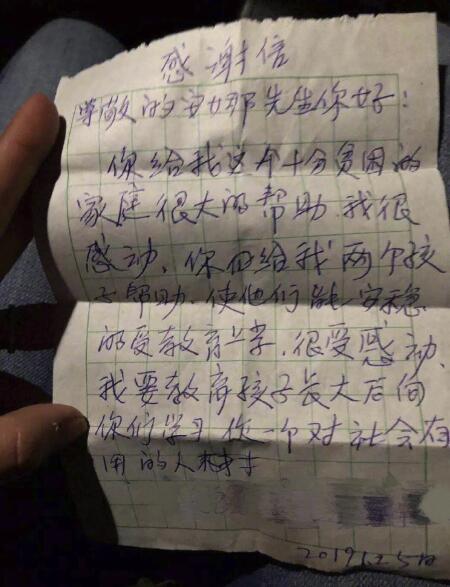 感谢信
尊敬的安娜先生你好：
你给我这个十分贫困的
家庭很大的帮助，我很
感动、你们给我两个孩
子帮助、使他们能安稳
的受教育上学、很受感动、
我要教育孩子长大后向
你们学习做一个对社会有
用的人材